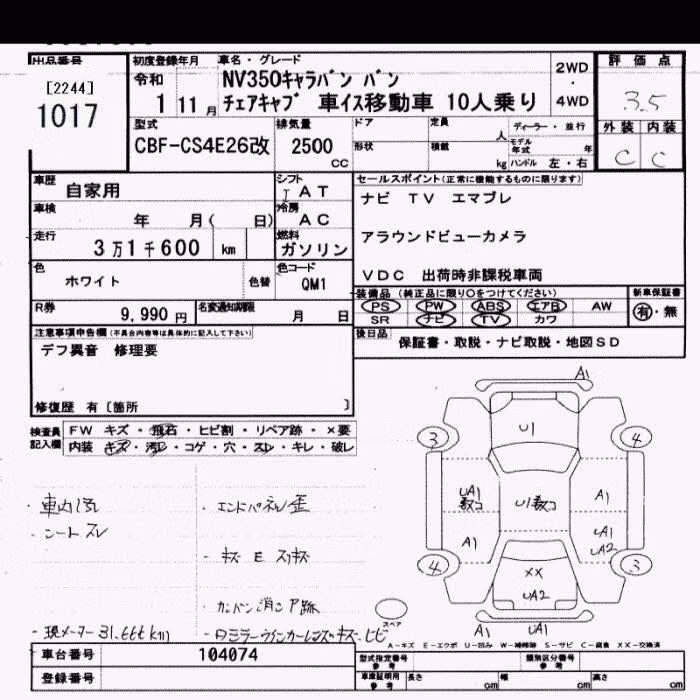 出品番号
[2244]
1017
初度登録年月
令和
1 11月
車名・グレード
NV350キャラバン バン
チェアキャブ 車イス移動車 10人乗り
2WD
・
4WD
評価点
3.5
外装 内装
C C
型式
CBF-CS4E26改
排気量
2500
CC
ドア
形状
定員
人
積載
kg
ディーラー・並行
モデル年式
年
ハンドル 左・右
車歴
自家用
シフト
I A T
車検
年 月( 日)
冷房
A C
走行
3万1千600 km
燃料
ガソリン
色
ホワイト
色替
色コード
QM1
R券
9,990円
名変通知期限
月 日
セールスポイント(正常に機能するものに限ります)
ナビ TV エマブレ
アラウンドビューカメラ
VDC 出荷時非課税車両
装備品(純正品に限り○をつけてください)
PS PW ABS エアB AW
SR ナビ TV カワ
新車保証書
有・無
後日品
保証書・取説・ナビ取説・地図SD
注意事項申告欄(不具合内容等は具体的に記入して下さい)
デフ異音 修理要
修復歴 有〔箇所 〕
検査員記入欄
FW キズ・飛石・ヒビ割・リペア跡・×要
内装 キズ・汚レ・コゲ・穴・スレ・キレ・破レ
・車内汚
・シートスレ
・現メーター31.666km
・エンドパネル歪
・キズ E スリキズ
A1
3
4
U1
UA1
数コ
U1数コ
A1
A1
UA1
UA2
4
3
XX
UA2
スペア
A1
UA1
A-キズ E-エクボ U-凹み W-補修跡 S-サビ C-腐食 XX-交換済
車台番号
104074
登録番号
型式指定番号
参考
類別区分番号
参考
車庫証明用
参考
長さ
cm
幅
cm
高さ
cm